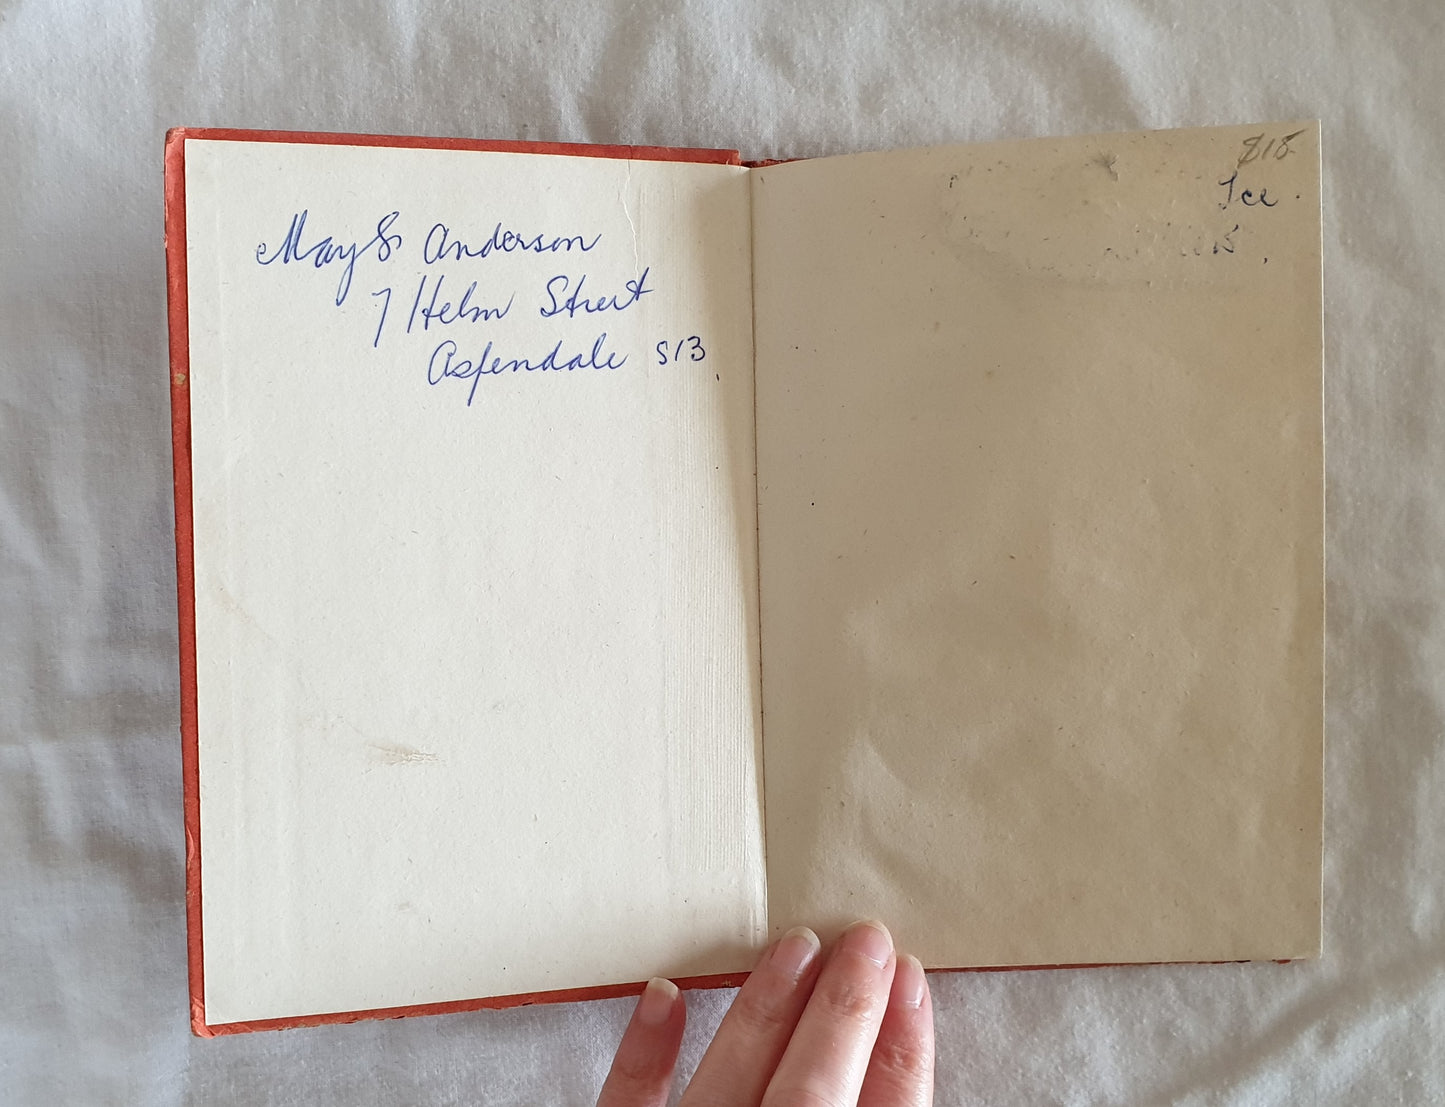 May S Anderson
7 Helm Street
Aspendale S13
Ice